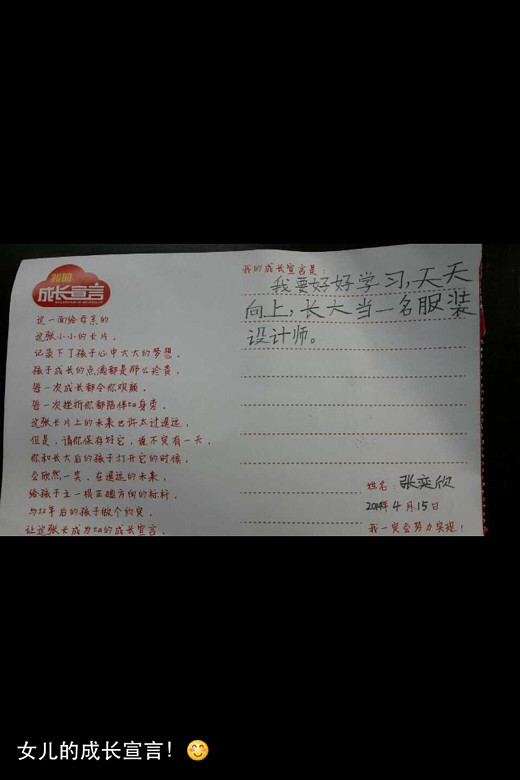 我的
成长宣言
这一面给母亲的
这张小小的卡片，
记录下了孩子心中大大的梦想，
孩子成长的点滴都是那么珍贵，
每一次成长都令你欢颜，
每一次挫折你都陪伴ta身旁，
这张卡片上的未来也许太过遥远，
但是，请你保存好它，说不定有一天，
你和长大后的孩子打开它的时候，
会欣然一笑，在遥远的未来，
给孩子立一根正确方向的标杆，
与22年后的孩子做个约定，
让这张卡成为ta的成长宣言。
我的成长宣言是：
我要好好学习，天天
向上，长大当一名服装
设计师。
姓名：张奕欣
2014年4月15日
我一定会努力实现！
女儿的成长宣言！